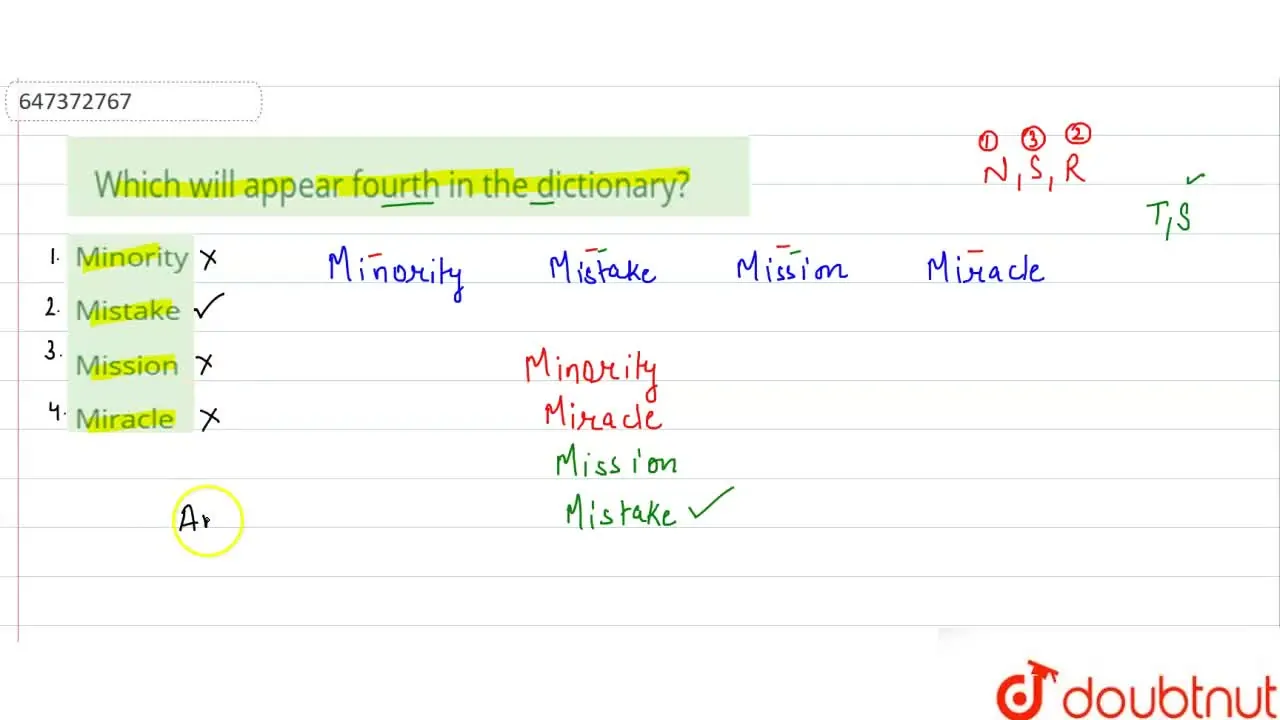 647372767
① ③ ②
N, S, R
Which will appear fourth in the dictionary?
T, S
1. Minority ✗
Minority Mistake Mission Miracle
2. Mistake ✓
3. Mission ✗
Minority
4. Miracle ✗
Miracle
Mission
Mistake ✓
doubtnut